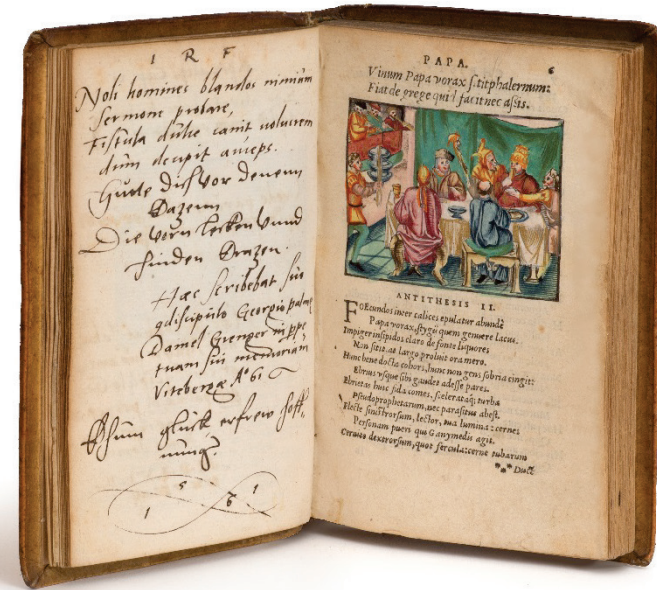 I R F
Noli homines blandos nimium
sermone probare,
Fistula dulce canit volucrem
dum decipit auceps.
Hutte dich vor denenn
Kazenn
Die vorn lecken vnnd
hinden krazen.
Haec scribebat suo
condiscipulo Georgio
Daniel
tuam sui memoriam
Vitebergæ Aº 61
glück erfrew
nung.
1 5 6 1
PAPA. 6
Vinum Papa vorax sitit phalernum:
Fiat de grege qui'l facit nec assis.
ANTITHESIS II.
FOEcundos incer calices epulatur abunde
Papa vorax, stygij quem genuere lacus.
Impiger insipidos claro de fonte liquores
Non sitit, at largo proluit ora mero.
Hunc bene docta cohors, hunc non gens sobria cingit:
Ebrius vsque sibi gaudet adesse pares.
Ebrietas huic fida comes, scelerataq; turba
Pseudoprophetarum, nec parasitus abest.
Flecte sinistrorsum, lector, tua lumina: cernes
Personam pueri qui Ganymedis agit.
Cernito dextrorsum, quot fercula: cerne tubarum
** Duct